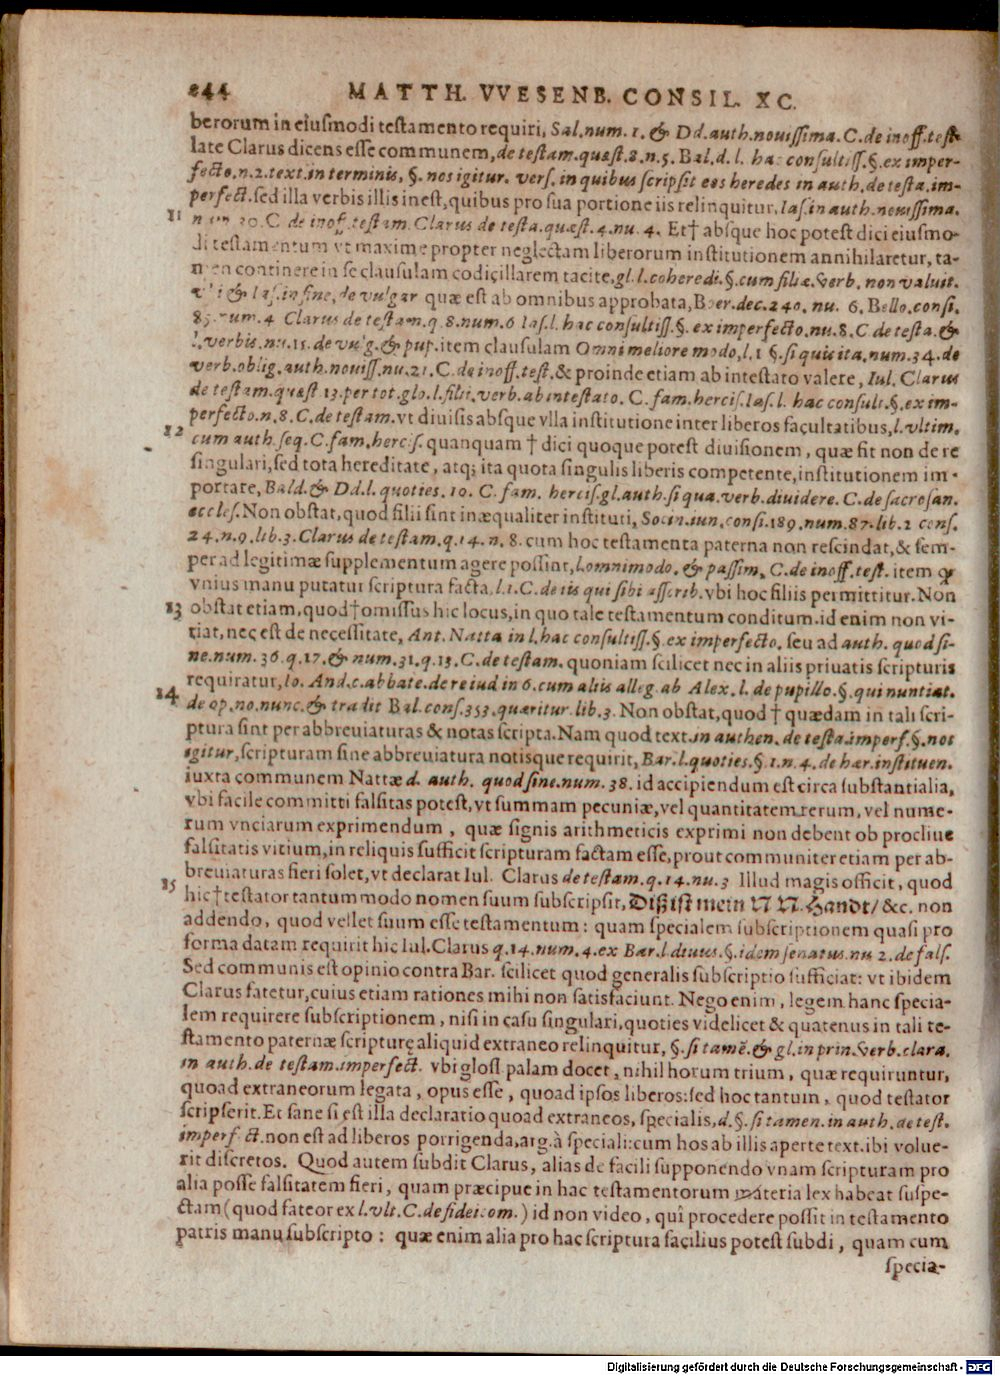 244 MATTH. VVESENB. CONSIL. XC.
berorum in eiuſmodi teſtamento requiri, Sal.num. 1. & Dd.auth.nouiſſima. C.de inoff.teſt.
late Clarus dicens eſſe communem, de teſtam.quæſt.8.n.5. Bal.d.l. hac conſultiſſ.§.ex imper-
fecto.n.2.text.in terminis, §. nos igitur. verſ. in quibus ſcripſit eos heredes in auth.de teſta.im-
perfect.ſed illa verbis illis ineſt,quibus pro ſua portione iis relinquitur. Iaſ.in auth.nouiſſima.
11 num 20.C de inoff.teſtam. Clarus de teſta.quæſt.4.nu.4. Et† absque hoc poteſt dici eiuſmo-
di teſtamentum vt maxime propter neglectam liberorum inſtitutionem annihilaretur, ta-
men continere in ſe clauſulam codicillarem tacite,gl.l.coheredi.§.cum filiæ.verb. non valuit.
vbi & Iaſ.in fine, de vulgar quæ eſt ab omnibus approbata, Boer.dec.240. nu. 6. Bello.conſi.
85.num.4 Clarus de teſtam.q 8.num.6 Iaſ.l. hac conſultiſſ.§. ex imperfecto.nu.8.C de teſta.&
l.verbis.nu.15.de vulg.& pup.item clauſulam Omni meliore modo, l.1 §.ſi quis ita.num.34.de
verb.oblig.auth.nouiſſ.nu.21.C.de inoff.teſt.& proinde etiam ab inteſtato valere, Iul. Clarus
de teſtam.quæſt 13.per tot.glo.l.filii.verb.ab inteſtato. C.fam.hercis.Iaſ.l. hac conſult.§.ex im-
perfecto.n.8.C.de teſtam.vt diuiſis absque vlla inſtitutione inter liberos facultatibus,l.vltim.
12 cum auth.ſeq.C.fam.hercis. quanquam † dici quoque poteſt diuiſionem, quæ fit non de re
ſingulari,ſed tota hereditate, atq; ita quota ſingulis liberis competente,inſtitutionem im-
portare, Bald.& Dd.l. quoties. 10. C. fam. hercis.gl.auth.ſi qua.verb.diuidere. C.de ſacroſan.
eccleſ.Non obſtat,quod filii ſint inæqualiter inſtituti, Socin.iun.conſi.189.num.87.lib.2 conſ.
24.n.9.lib.3.Clarus de teſtam.q.14.n. 8. cum hoc teſtamenta paterna non reſcindat,& ſem-
per ad legitimæ ſupplementum agere poſſint, l.omnimodo.& paſſim, C.de inoff.teſt. item ꝙ
vnius manu putatur ſcriptura facta, l.1.C.de iis qui ſibi aſſcrib.vbi hoc filiis permittitur. Non
13 obſtat etiam,quod†omiſſus hic locus,in quo tale teſtamentum conditum.id enim non vi-
tiat,nec eſt de neceſſitate, Ant. Natta in l.hac conſultiſſ.§. ex imperfecto. ſeu ad auth. quod ſi-
ne.num. 36.q.17.& num.31.q.15.C.de teſtam. quoniam ſcilicet nec in aliis priuatis ſcripturis
requiratur,Io. And.c.abbate.de re iud in 6.cum aliis alleg.ab Alex.l. de pupillo.§.qui nuntiat.
14 de op.no.nunc.& tradit Bal.conſ.353.quæritur.lib.3. Non obſtat,quod † quædam in tali ſcri-
ptura ſint per abbreuiaturas & notas ſcripta.Nam quod text.in authen.de teſta.imperf.§.nos
igitur,ſcripturam ſine abbreuiatura notisque requirit, Bar.l.quoties.§.1.n.4.de hær.inſtituen.
iuxta communem Nattæ d. auth. quod ſine.num. 38. id accipiendum eſt circa ſubſtantialia,
vbi facile committi falſitas poteſt,vt ſummam pecuniæ,vel quantitatem rerum, vel nume-
rum vnciarum exprimendum , quæ ſignis arithmeticis exprimi non debent ob procliue
falſitatis vitium,in reliquis ſufficit ſcripturam factam eſſe,prout communiter etiam per ab-
breuiaturas fieri ſolet,vt declarat Iul. Clarus de teſtam.q.14.nu.3 Illud magis officit, quod
15 hic†teſtator tantummodo nomen ſuum ſubſcripſit, Diß iſt mein N N. Handt/ &c. non
addendo, quod vellet ſuum eſſe teſtamentum: quam ſpecialem ſubſcriptionem quaſi pro
forma datam requirit hic Iul.Clarus q.14.num.4.ex Bar.l.diuus.§.idem ſenatus.nu 2.de falſ.
Sed communis eſt opinio contra Bar. ſcilicet quod generalis ſubſcriptio ſufficiat: vt ibidem
Clarus fatetur,cuius etiam rationes mihi non ſatisfaciunt. Nego enim, legem hanc ſpecia-
lem requirere ſubſcriptionem, niſi in caſu ſingulari,quoties videlicet & quatenus in tali te-
ſtamento paternæ ſcripturę aliquid extraneo relinquitur, §.ſi tamē.& gl.in prin.verb.clara.
in auth.de teſtam.imperfect. vbi gloſſ. palam docet, nihil horum trium, quæ requiruntur,
quoad extraneorum legata, opus eſſe, quoad ipſos liberos:ſed hoc tantum, quod teſtator
ſcripſerit.Et ſane ſi eſt illa declaratio quoad extraneos, ſpecialis,d.§.ſi tamen.in auth.de teſt.
imperfect.non eſt ad liberos porrigenda,arg.à ſpeciali:cum hos ab illis aperte text.ibi volue-
rit diſcretos. Quod autem ſubdit Clarus, alias de facili ſupponendo vnam ſcripturam pro
alia poſſe falſitatem fieri, quam præcipue in hac teſtamentorum materia lex habeat ſuſpe-
ctam (quod fateor ex l.vlt.C.de fideicom.) id non video, quî procedere poſſit in teſtamento
patris manu ſubſcripto: quæ enim alia pro hac ſcriptura facilius poteſt ſubdi, quam cum
ſpecia-
Digitalisierung gefördert durch die Deutsche Forschungsgemeinschaft - DFG